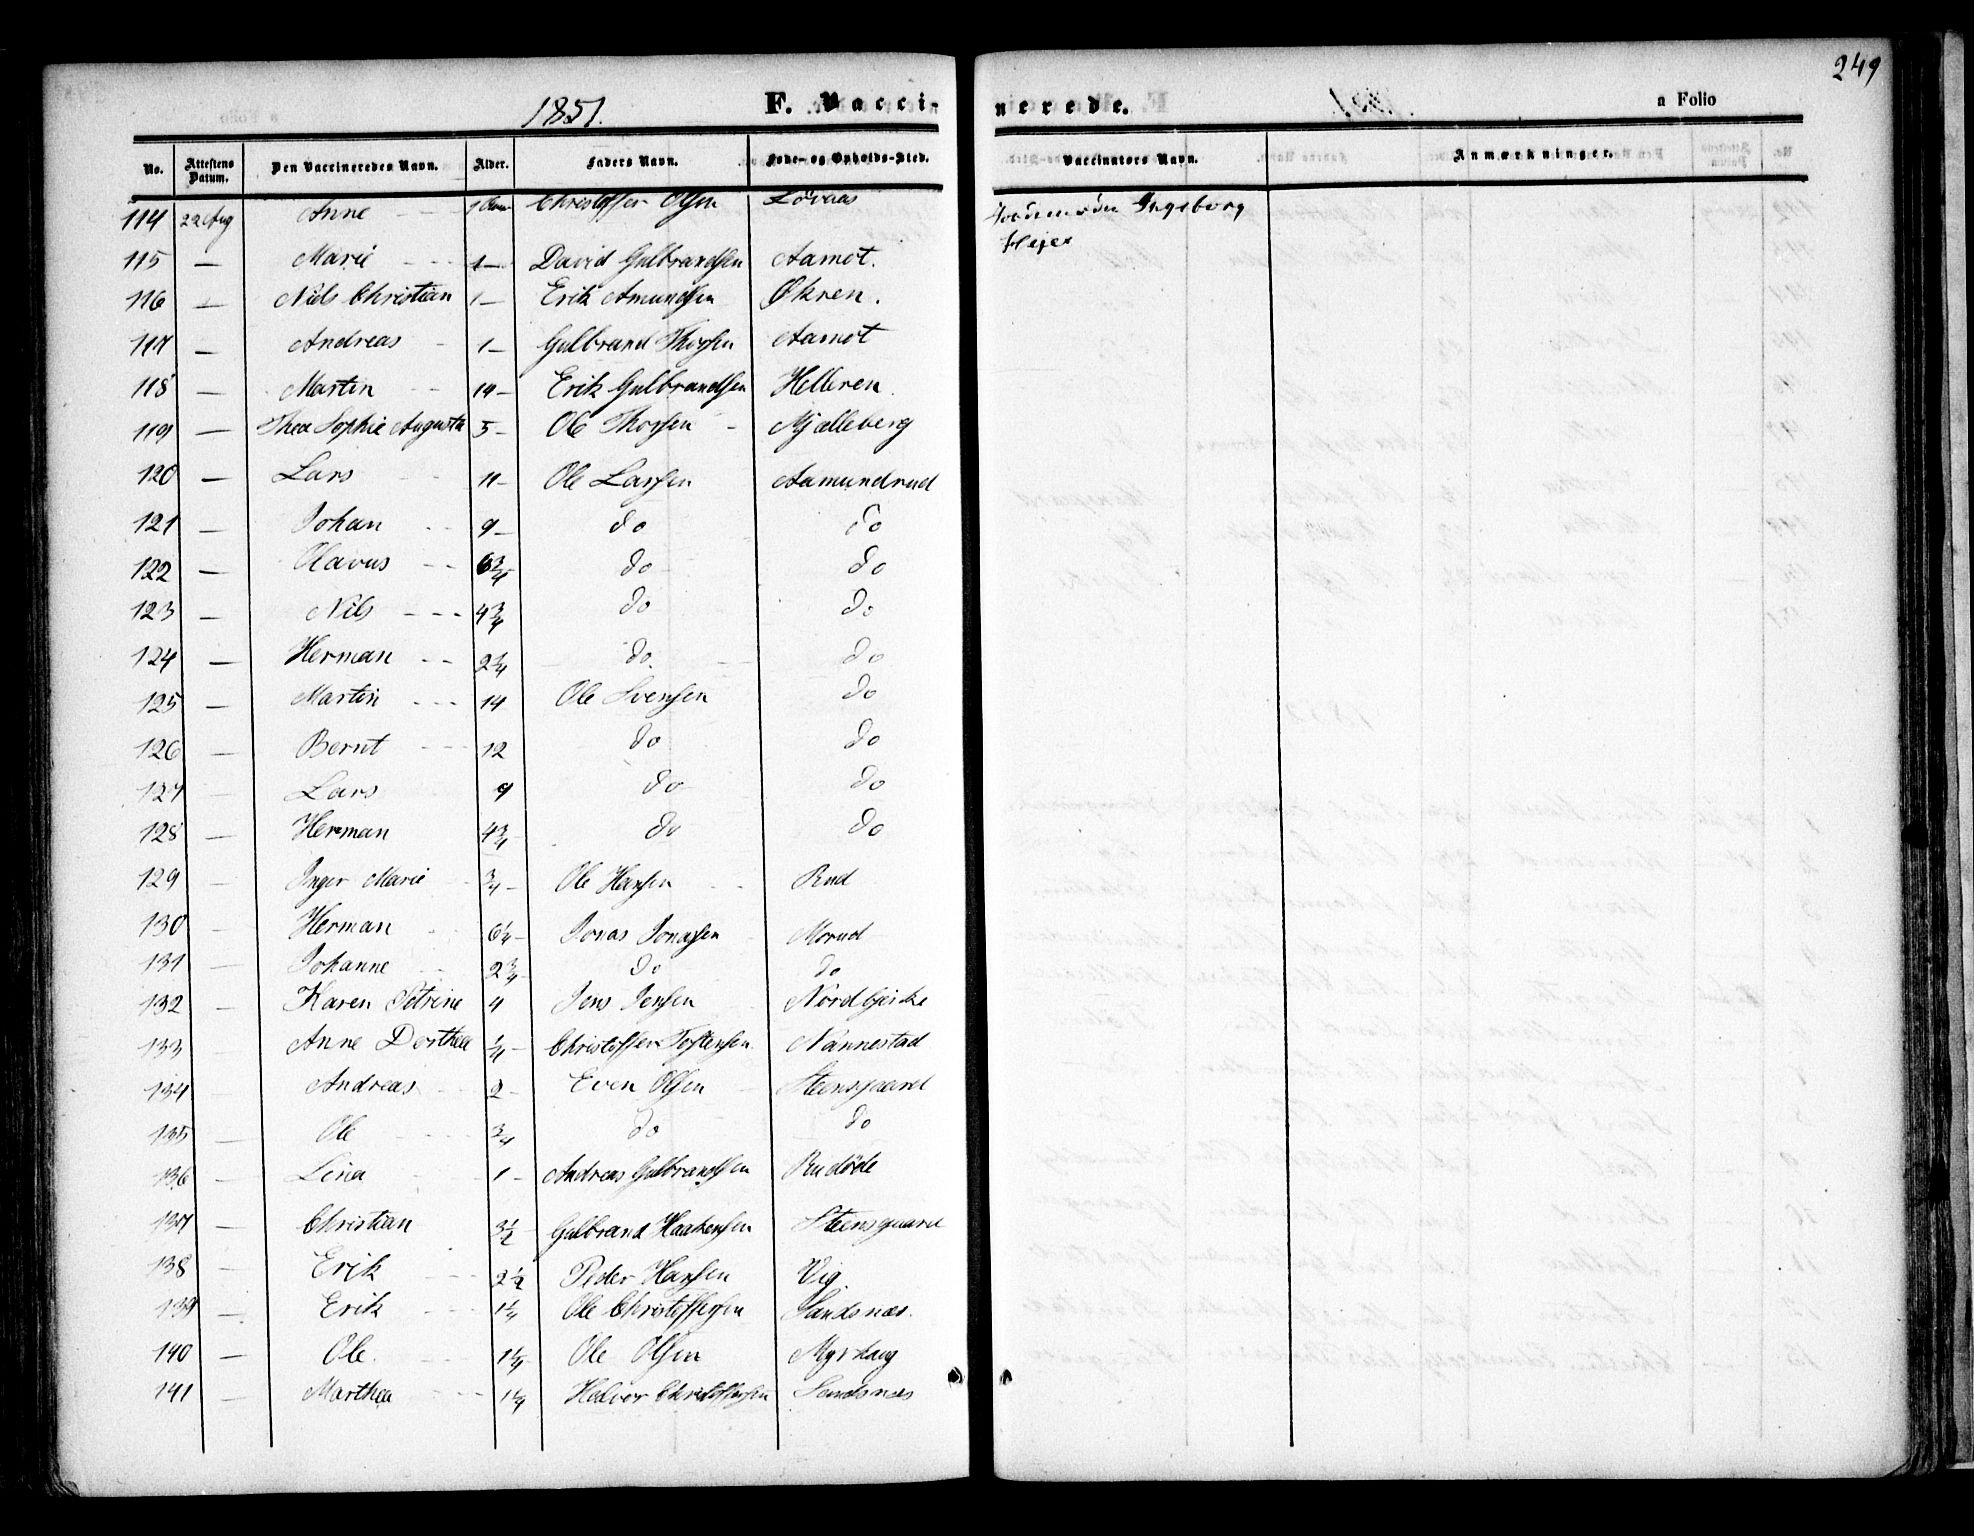 249
1851. F. Vacci-
nerede. a Folio
No. Attestens Datum. Den Vaccineredes Navn. Alder. Faders Navn. Føde- og Opholds-Sted. Vaccinators Navn. Anmærkninger.
114 22 Aug Anne 1 Christoffer Olsen Løvaas Jordemoder Ingeborg
Hejer
115 — Marie 1 — David Gulbrandsen Aamot.
116 — Niels Christian 1 — Erik Amundsen Økren.
117 — Andreas 1 — Gulbrand Aamot
118 — Martin 14 — Erik Gulbrandsen Helleren.
119 — Thea Sophie Augusta 5 — Ole Mjælleberg
120 — Lars 11 — Ole Larsen Aamundrud
121 — Johan 9 — do do
122 — Olavus 6 3/4 do do
123 — Nils 4 3/4 do do
124 — Herman 2 3/4 do do
125 — Martin 14 Ole Svensen do
126 — Bernt 12 do do
127 — Lars 9 do do
128 — Herman 4 3/4 do do
129 — Inger Marie 3/4 — Ole Hansen Rud
130 — Herman 6 1/4 — Jonas Jonassen Morud
131 — Johanne 2 3/4 do do
132 — Karen Petrine 4 Jens Jensen Nordbjerke
133 — Anne Dorthea 1/4 — Christoffer Torstensen Nannestad
134 — Andreas 2 — Even Olsen Steensgaard
135 — Ole 3/4 do do
136 — Lina 1 — Andreas Gulbrandsen Rudøde
137 — Christian 3 1/2 — Gulbrand Haakensen Steensgaard
138 — Erik 2 1/2 Peder Hansen Vig.
139 — Erik 1 1/4 Ole Christoffersen Sandsnæs.
140 — Ole. 1 1/4 Ole Olsen Myrhaug
141 — Marthea 1 1/4 Halvor Christoffersen Sandsnæs